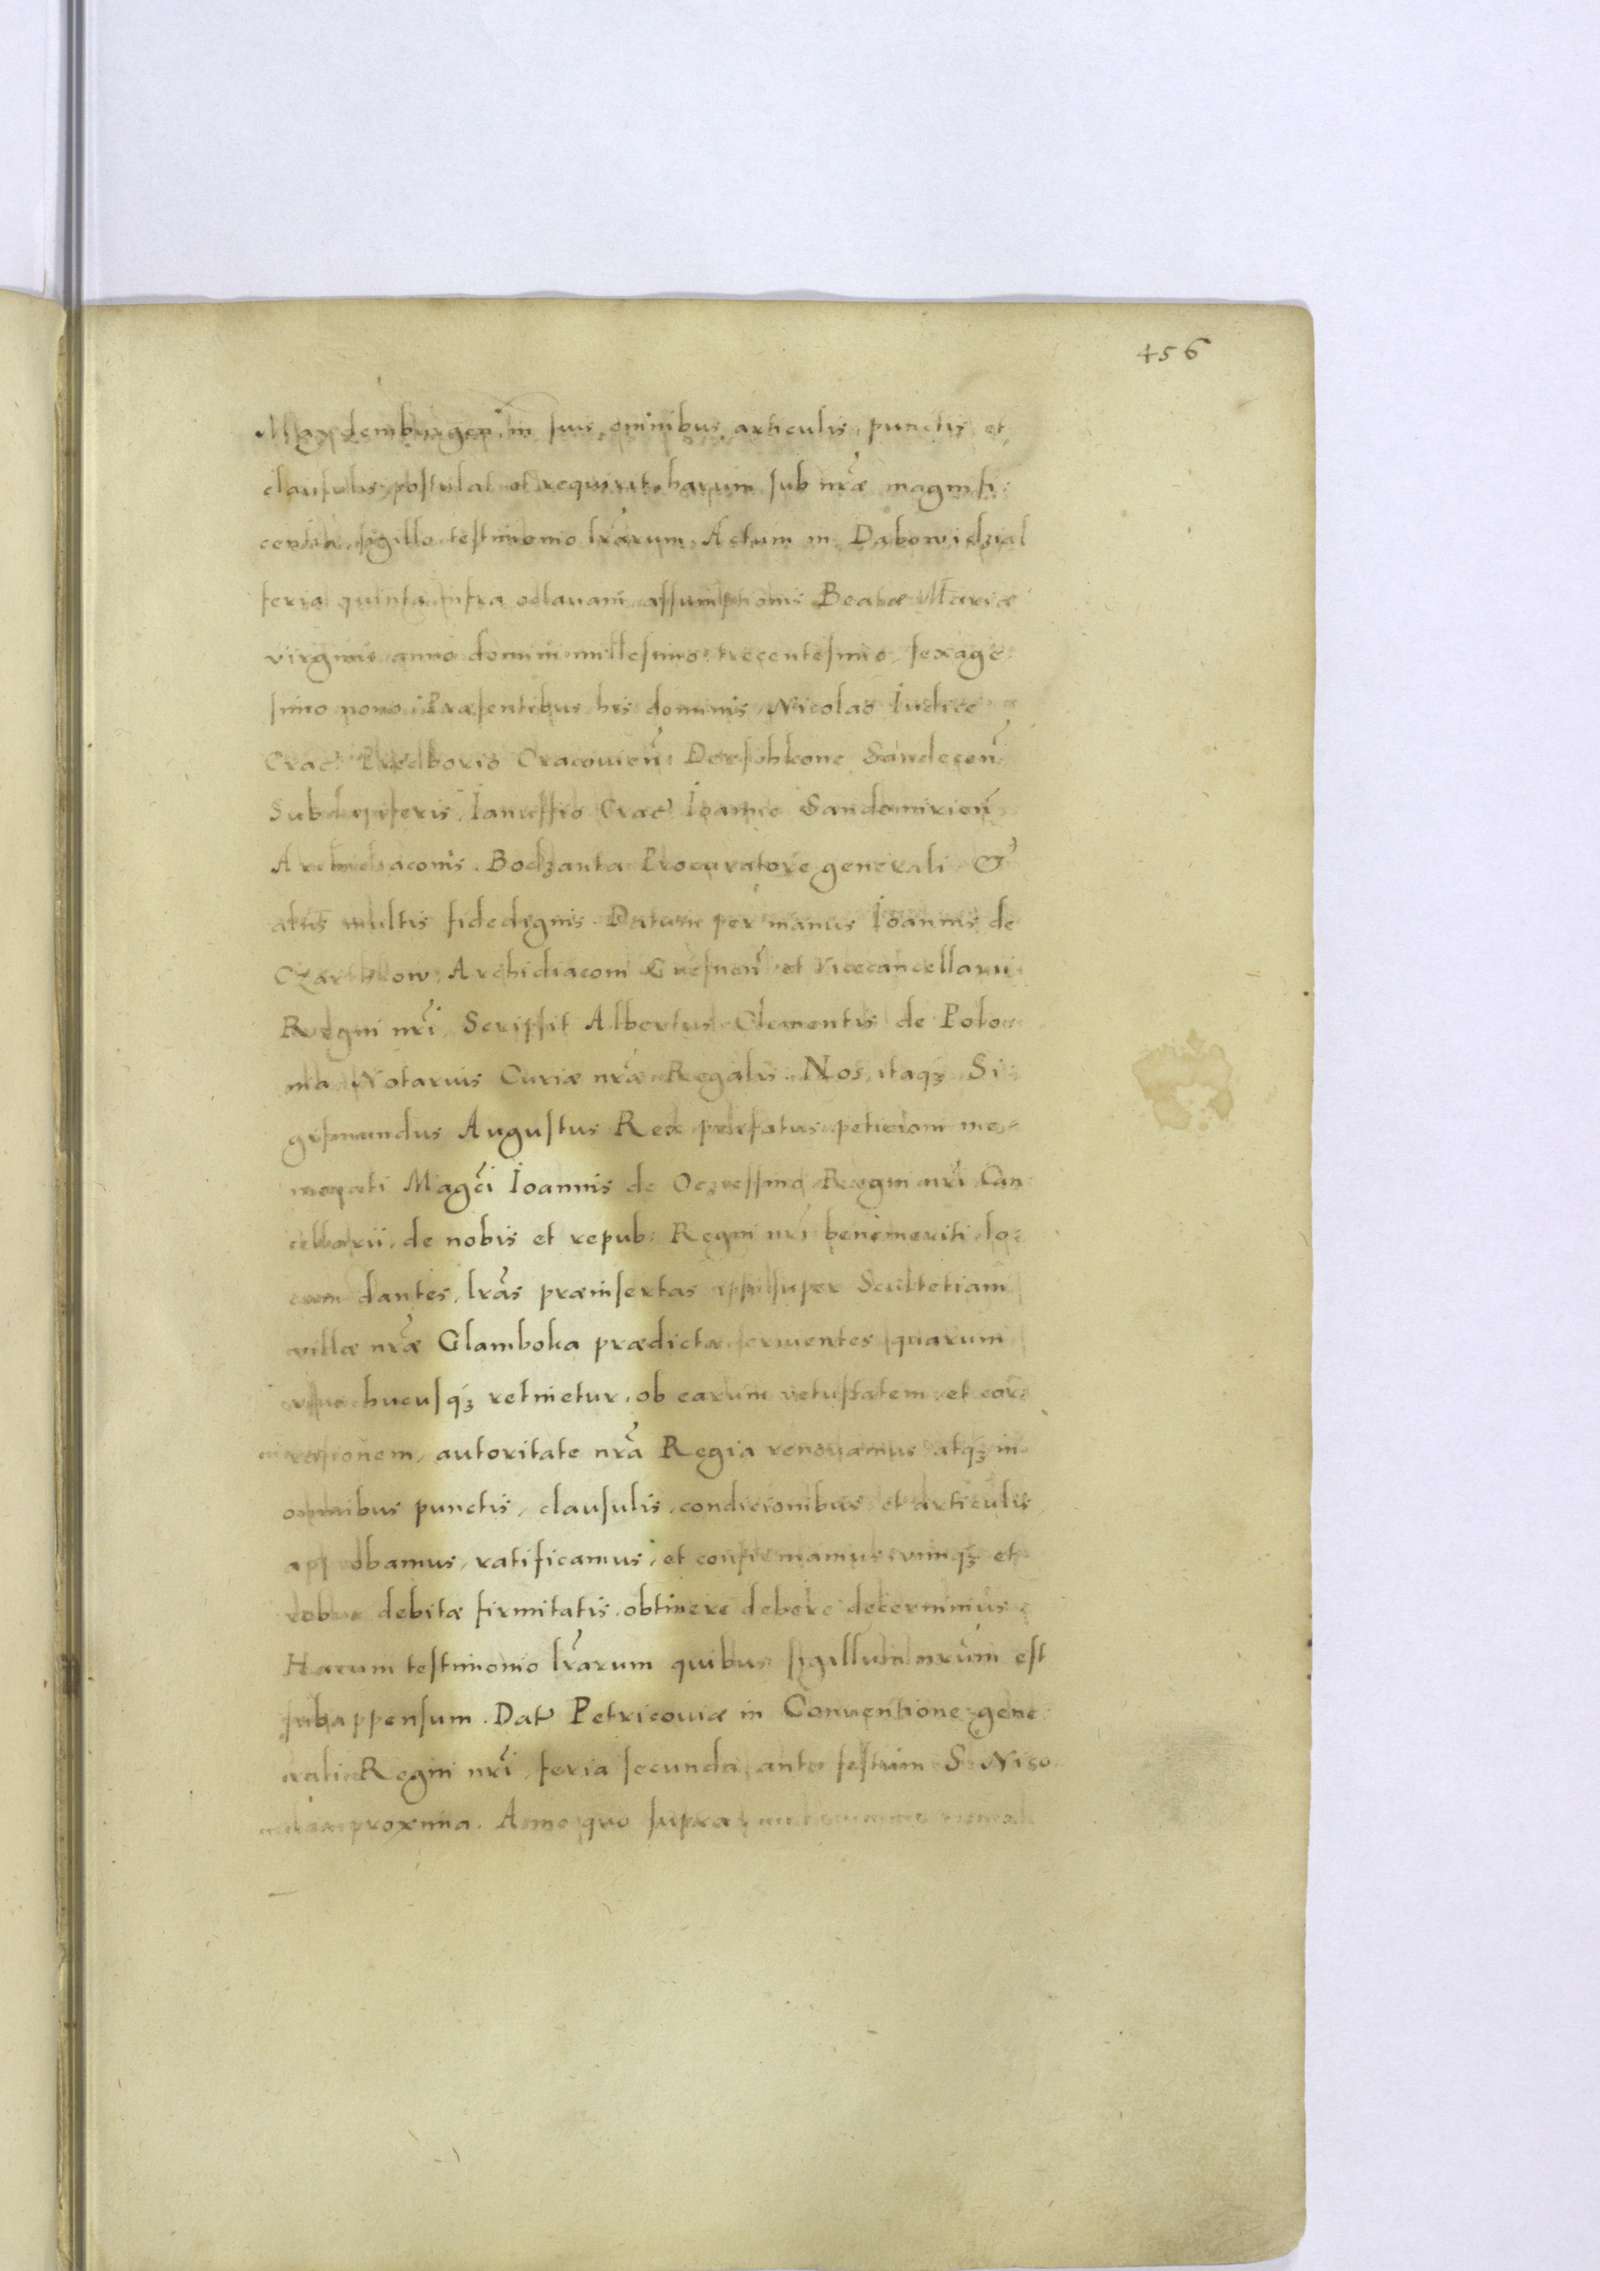 456
Maydemburgen̄ in suis omnibus articulis, punctis et
clausulis postulat et requirit, harum sub nr̄æ magnifi:
centiæ sigillo testimonio lr̄arum. Actum in Dabowidzial
feria quinta infra octavam assumptionis Beatæ Mariæ
virginis anno domini millesimo trecentesimo, sexage:
simo nono. Præsentibus his dominis, Nicolao Iudice
Crac̄ Predborio Cracovien̄: Dersohkone Sandecen̄
Subdapiferis, Ianussio Crac̄ Ioanne Sandomirien̄
Archidiaconis. Bodzanta Procuratore generali &
aliis multis fidedignis. Datum per manus Ioannis de
Czarnkow, Archidiaconi Gnesnen̄ et Vicecancellarii
Regni nr̄i, Scripsit Albertus Clementis de Polo
nia Notarius Curiæ nr̄æ Regalis. Nos itaqȝ Si:
gismundus Augustus Rex præfatus peticioni me,
morati Mag̃ci Ioannis de Oczessino Regni nr̄i Can
cellarii, de nobis et repub: Regni nr̄i benemeriti lo:
cum dantes, lr̄as præinsertas super Scultetiam
villæ nr̄æ Glamboka prædictæ servientes quarum
hucusqȝ retinetur, ob earum vetustatem, et cor:
autoritate nr̄a Regia renovamus atqȝ in
omnibus punctis, clausulis, condicionibus et articulis
approbamus, ratificamus, et confirmamus, vimqȝ et
robur debitæ firmitatis, obtinere debere decernimus
Harum testimonio lr̄arum quibus sigillum nr̄um est
subappensum. Dat̄ Petricoviæ in Conventione gene
rali Regni nr̄i feria secunda ante festum S. Nico
proxima. Anno quo supra